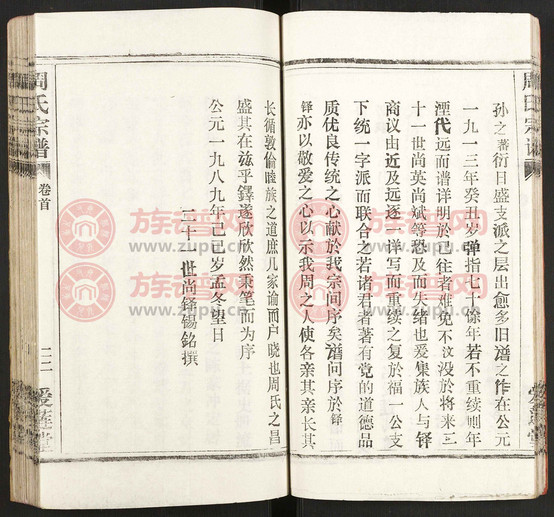 孙之蕃衍日盛支派之层出愈多旧谱之作在公元
一九一三年癸丑岁弹指七十馀年若不重续则年
湮代远而谱详明於已往者难免不汶没於将来二
十一世尚英尚斌等恐及而失绪也爰集族人与铎
商议由近及远逐一详写而重续之复於福一公支
下统一字派而联合之若诸君者著有党的道德品
质优良传统之心献於我宗间序矣谱问序於铎
铎亦以敬爱之心以示我周之人使各亲其亲长其
长循敦伦睦族之道庶几家谕而户晓也周氏之昌
盛其在兹乎铎遂欣欣然秉笔而为序
公元一九八九年己巳岁孟冬望日
二十一世尚铎锡铭撰
周氏宗谱
卷首
二二
爱莲堂
周氏宗谱
爱莲堂
族谱网
www.zupu.cn
族谱网
www.zupu.cn
族谱网
www.zupu.cn
族谱网
www.zupu.cn